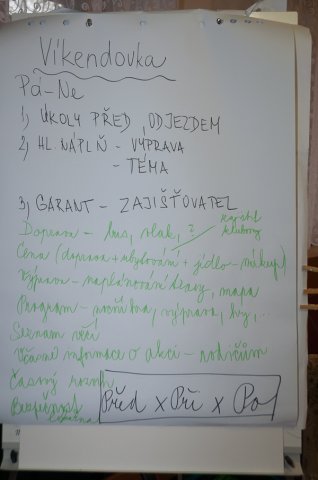 Víkendovka
Pá-Ne
1) ÚKOLY PŘED ODJEZDEM
2) HL. NÁPLŇ - VÝPRAVA
- TÉMA
3) GARANT - ZAJIŠŤOVATEL
Doprava - bus, vlak, ?
Cena (doprava + ubytování + jídlo - nákup)
Výprava - naplánování trasy, mapa
Program - noční hra, výprava, hry, ...
Seznam věcí
Včasné informace o akci - rodičům
Časový rozvrh
Bezpečnost
Před x Při x Po